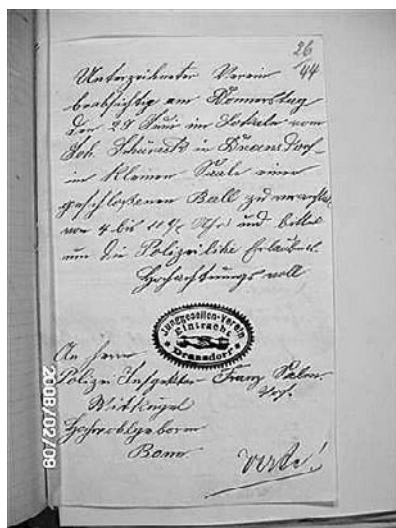 26
/44
Unterzeichneter Verein
beabsichtig am Donnerstag
den 29 Juni im Lokale von
Joh. in Dransdorf
im kleinen Saale einen
geschloßenen Ball zu
von 4 bis Uhr und bittet
um die Polizeiliche Erlaubniß
Hochachtungsvoll
Junggesellen-Verein
Eintracht
Dransdorf
An Herrn
Polizei Franz
Hochwohlgeboren
Bonn
2008/02/08